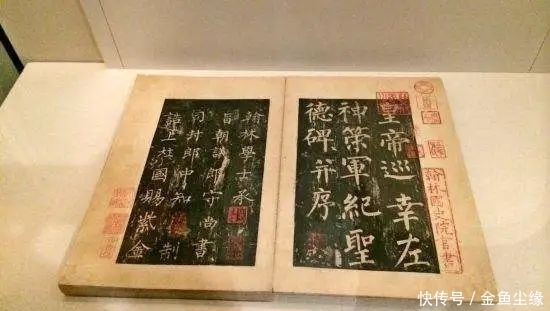 皇帝巡幸左
神策軍紀聖
德碑并序
翰林國史院官書
翰林學士承
旨朝議郎守尚書
司封郎中知制
誥上柱國賜紫金
快传号／金鱼尘缘